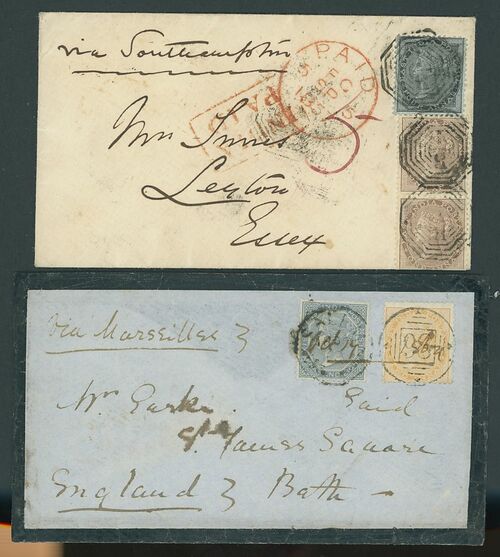 via Southampton
PAID
INDIA PAID
Mrs Innes
Leyton
Essex
Via Marseilles
Paid
St. James Square
England Bath